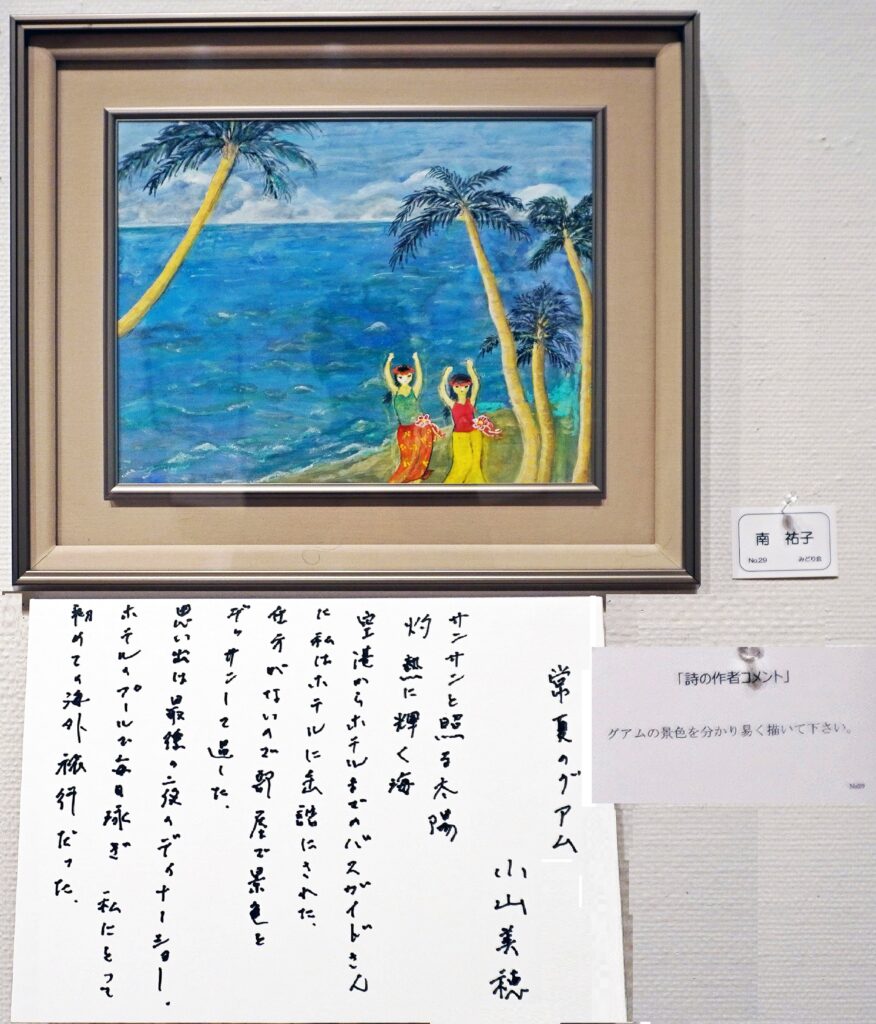 南 祐子
No.29 みどり会
「詩の作者コメント」
グアムの景色を分かり易く描いて下さい。
No29
常夏のグアム
小山美穂
サンサンと照る太陽
灼熱に輝く海
空港からホテルまでのバスガイドさん
に私はホテルに缶詰にされた、
仕方がないので部屋で景色を
デッサンして過した、
思い出は最後の夜のディナーショー、
ホテルのプールで毎日泳ぎ 私にとって
初めての海外旅行だった、